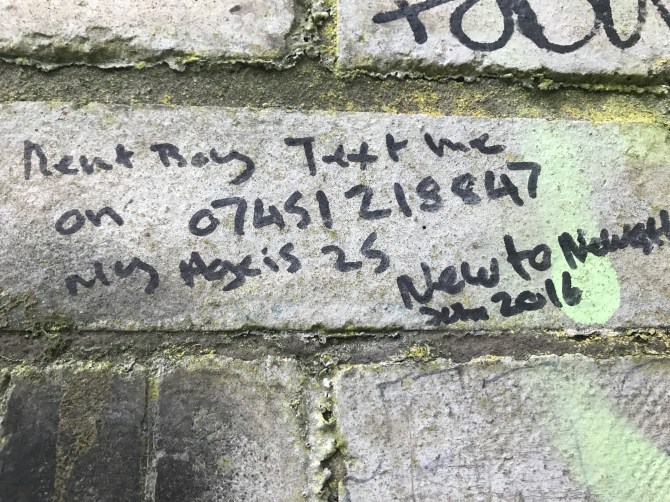 Rent Boy Text me
on 07451218847
My Age is 25
New to
2016